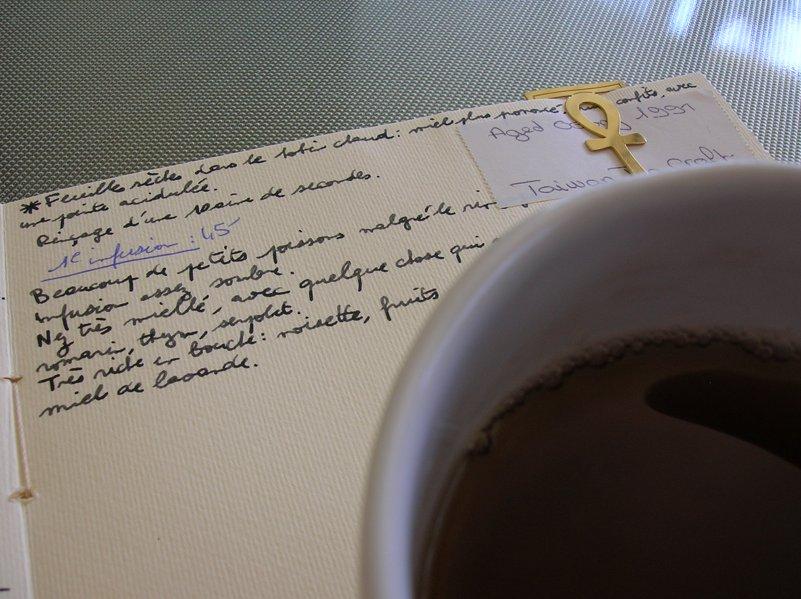 * Feuilles sèches dans le totin chaud: miel plus prononcé confits, avec
une pointe acidulée.
Rinçage d'une dizaine de secondes.
1e infusion : 45"
Beaucoup de petits poissons malgré le
Infusion assez sombre.
Nez très miellé, avec quelque chose qui
romarin, thym, serpolet.
Très riche en bouche: noisette, fruits
miel de lavande.
Aged 1991
Taiwan Tea Craft